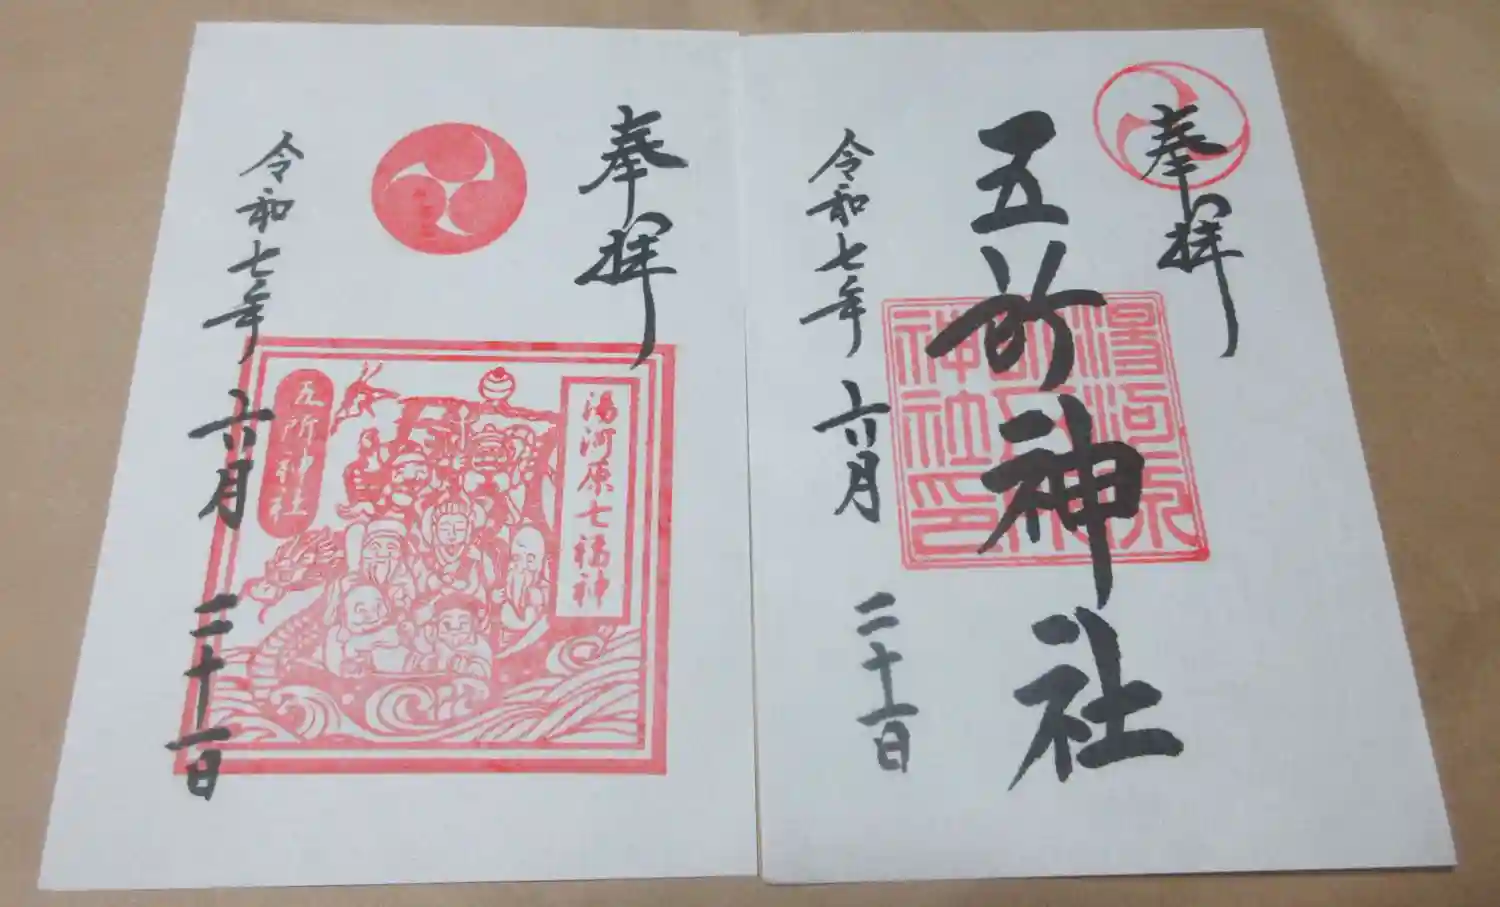 奉拝
五所神社
湯河原
五所
神社印
令和七年六月二十一日
奉拝
湯河原七福神
五所神社
令和七年六月二十一日